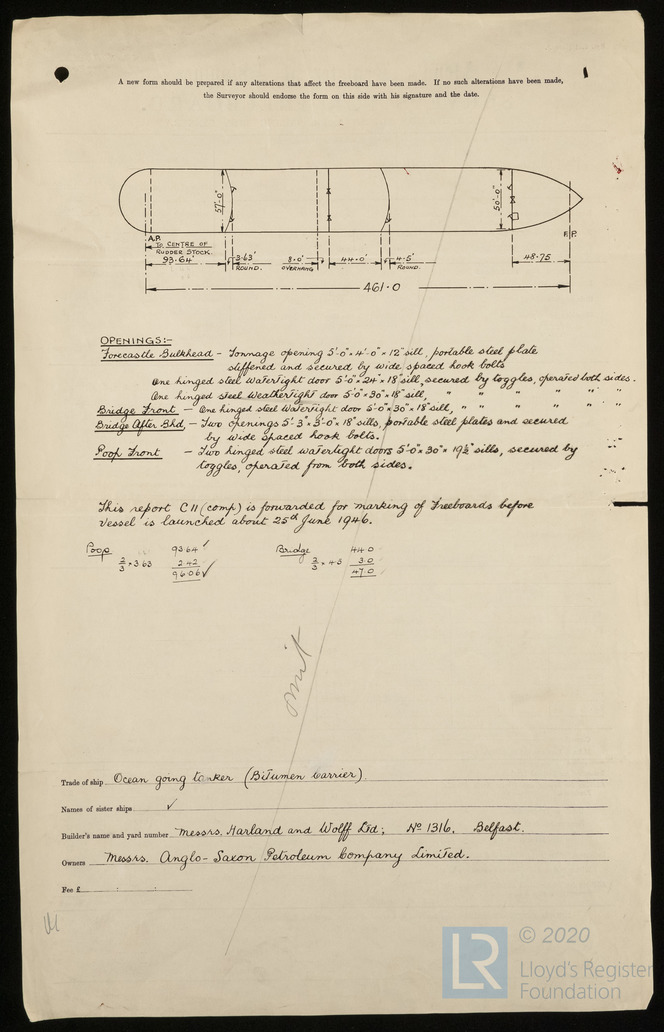 A new form should be prepared if any alterations that affect the freeboard have been made. If no such alterations have been made,
the Surveyor should endorse the form on this side with his signature and the date.
57'-0"
50'-0"
A.P.
F.P.
TO CENTRE OF
RUDDER STOCK.
93·64'
3·63'
ROUND.
8·0'
OVERHANG
44·0'
4·5'
ROUND.
48·75
461·0
OPENINGS:-
Forecastle Bulkhead - Tonnage opening 5'-0" × 4'-0" × 12" sill, portable steel plate
stiffened and secured by wide spaced hook bolts
One hinged steel watertight door 5'-0" × 24" × 18" sill, secured by toggles, operated both sides.
One hinged steel weathertight door 5'-0" × 30" × 18" sill, " " " " " "
Bridge Front - One hinged steel watertight door 5'-0" × 30" × 18" sill, " " " " " "
Bridge After Bhd, - Two openings 5'-3" × 3'-0" × 18" sills, portable steel plates and secured
by wide spaced hook bolts.
Poop Front - Two hinged steel watertight doors 5'-0" × 30" × 19½" sills, secured by
toggles, operated from both sides.
This report C11 (comp) is forwarded for marking of Freeboards before
vessel is launched about 25th June 1946.
Poop 93·64 ✓
2/3 × 3·63 2·42
96·06 ✓
Bridge 44·0
2/3 × 4·5 3·0
47·0
omit
Trade of ship Ocean going tanker (Bitumen Carrier).
Names of sister ships ✓
Builder's name and yard number Messrs. Harland and Wolff Ltd; Nº 1316. Belfast.
Owners Messrs. Anglo-Saxon Petroleum Company Limited.
Fee £ : :
LR
© 2020
Lloyd's Register
Foundation